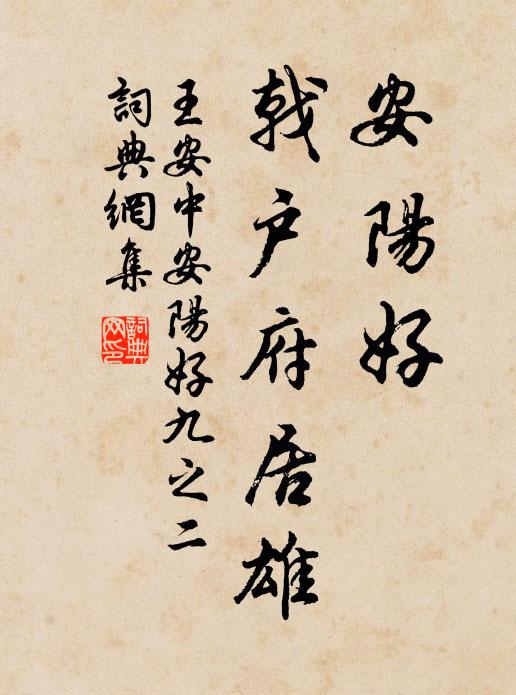 安陽好
戟户府居雄
王安中安陽好九之二
詞典網集
詞典网印